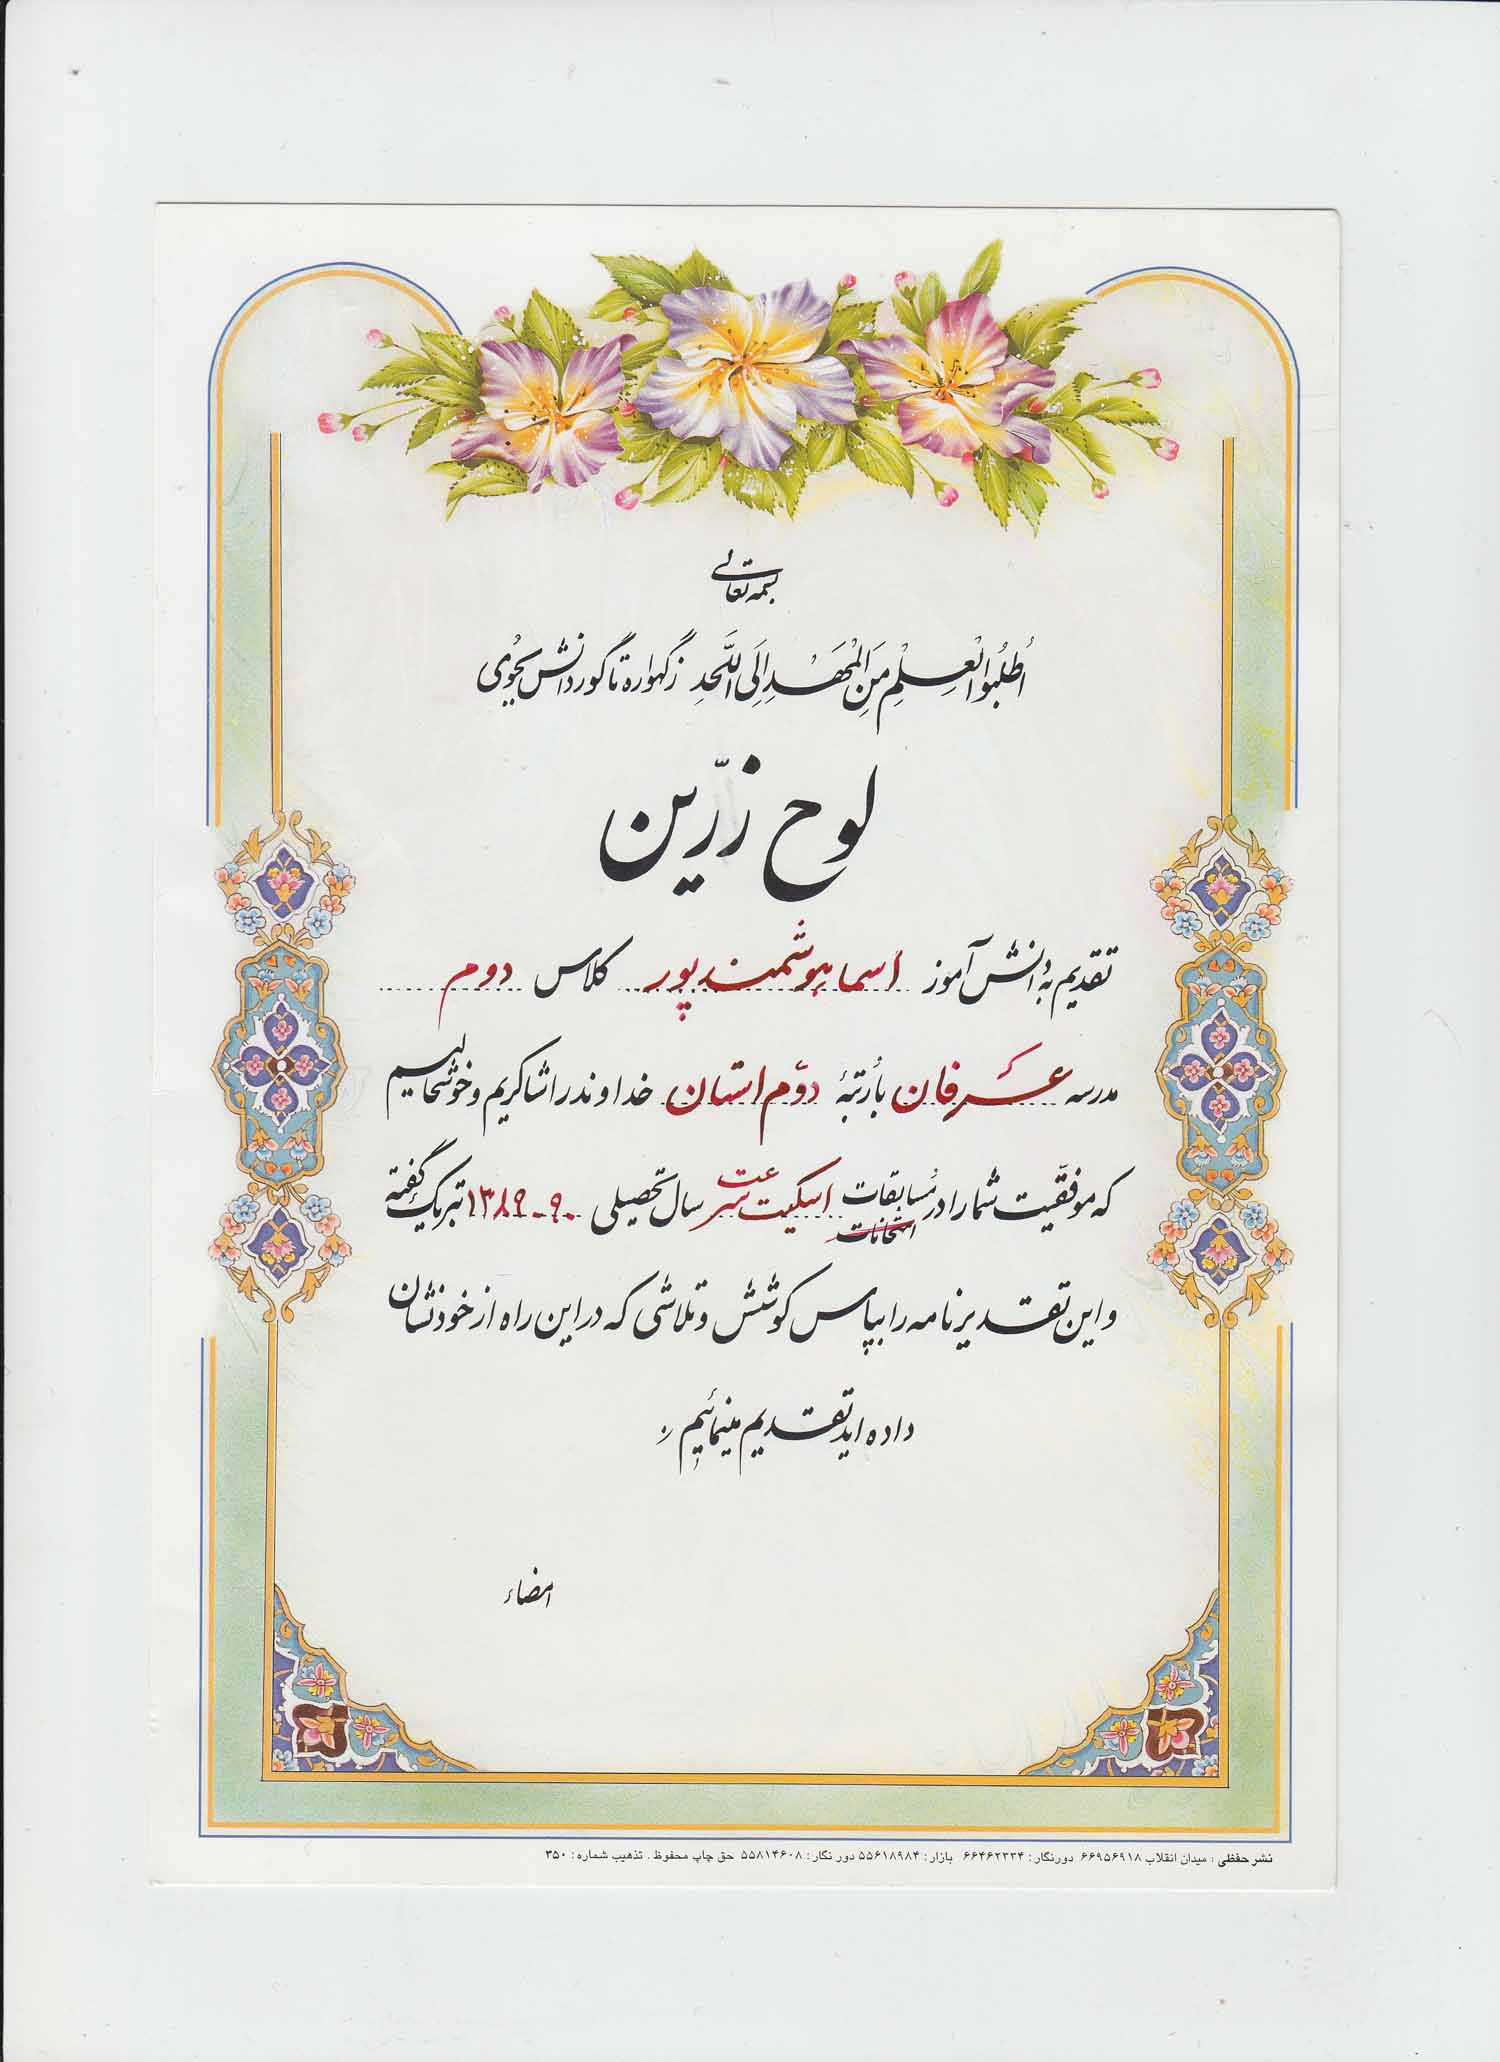 بسمه تعالی
اُطلُبُوا العِلْمِ مِنَ الْمَهْدِ اِلَی اللَّحدِ زگهواره تا گور دانش بجُوی
لوح زرّین
تقدیم به دانش آموز اسما هوشمندپور کلاس دوم
مدرسه عرفان با رُتبهٔ دوّم استان خداوند را شاکریم و خوشحالیم
که موفقیت شما را در مُسابقات امتحانات اسکیت سرعت سال تحصیلی ۹۰-۱۳۸۹ تبریک گفته
و این تقدیرنامه را بپاس کوشش و تلاشی که در این راه از خود نشان
داده اید تقدیم مینمائیم
امضاء
نشر حفظی : میدان انقلاب ۶۶۹۵۶۹۱۸ دورنگار: ۶۶۴۶۲۳۳۴ بازار: ۵۵۶۱۸۹۸۴ دور نگار: ۵۵۸۱۴۶۰۸ حق چاپ محفوظ . تذهیب شماره: ۳۵۰